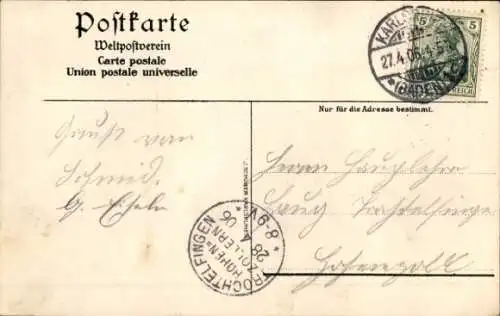 Postkarte
Weltpostverein
Carte postale
Union postale universelle
5 5
REICH
KARLS
27.4.06.4-5
(BADEN)
Nur für die Adresse bestimmt.
Gruß von
Schmid.
Herrn Hauptlehrer
Haug
Hohenzoll
TROCHTELFINGEN
HOHEN=
ZOLLERN
28 4 06
8-9V